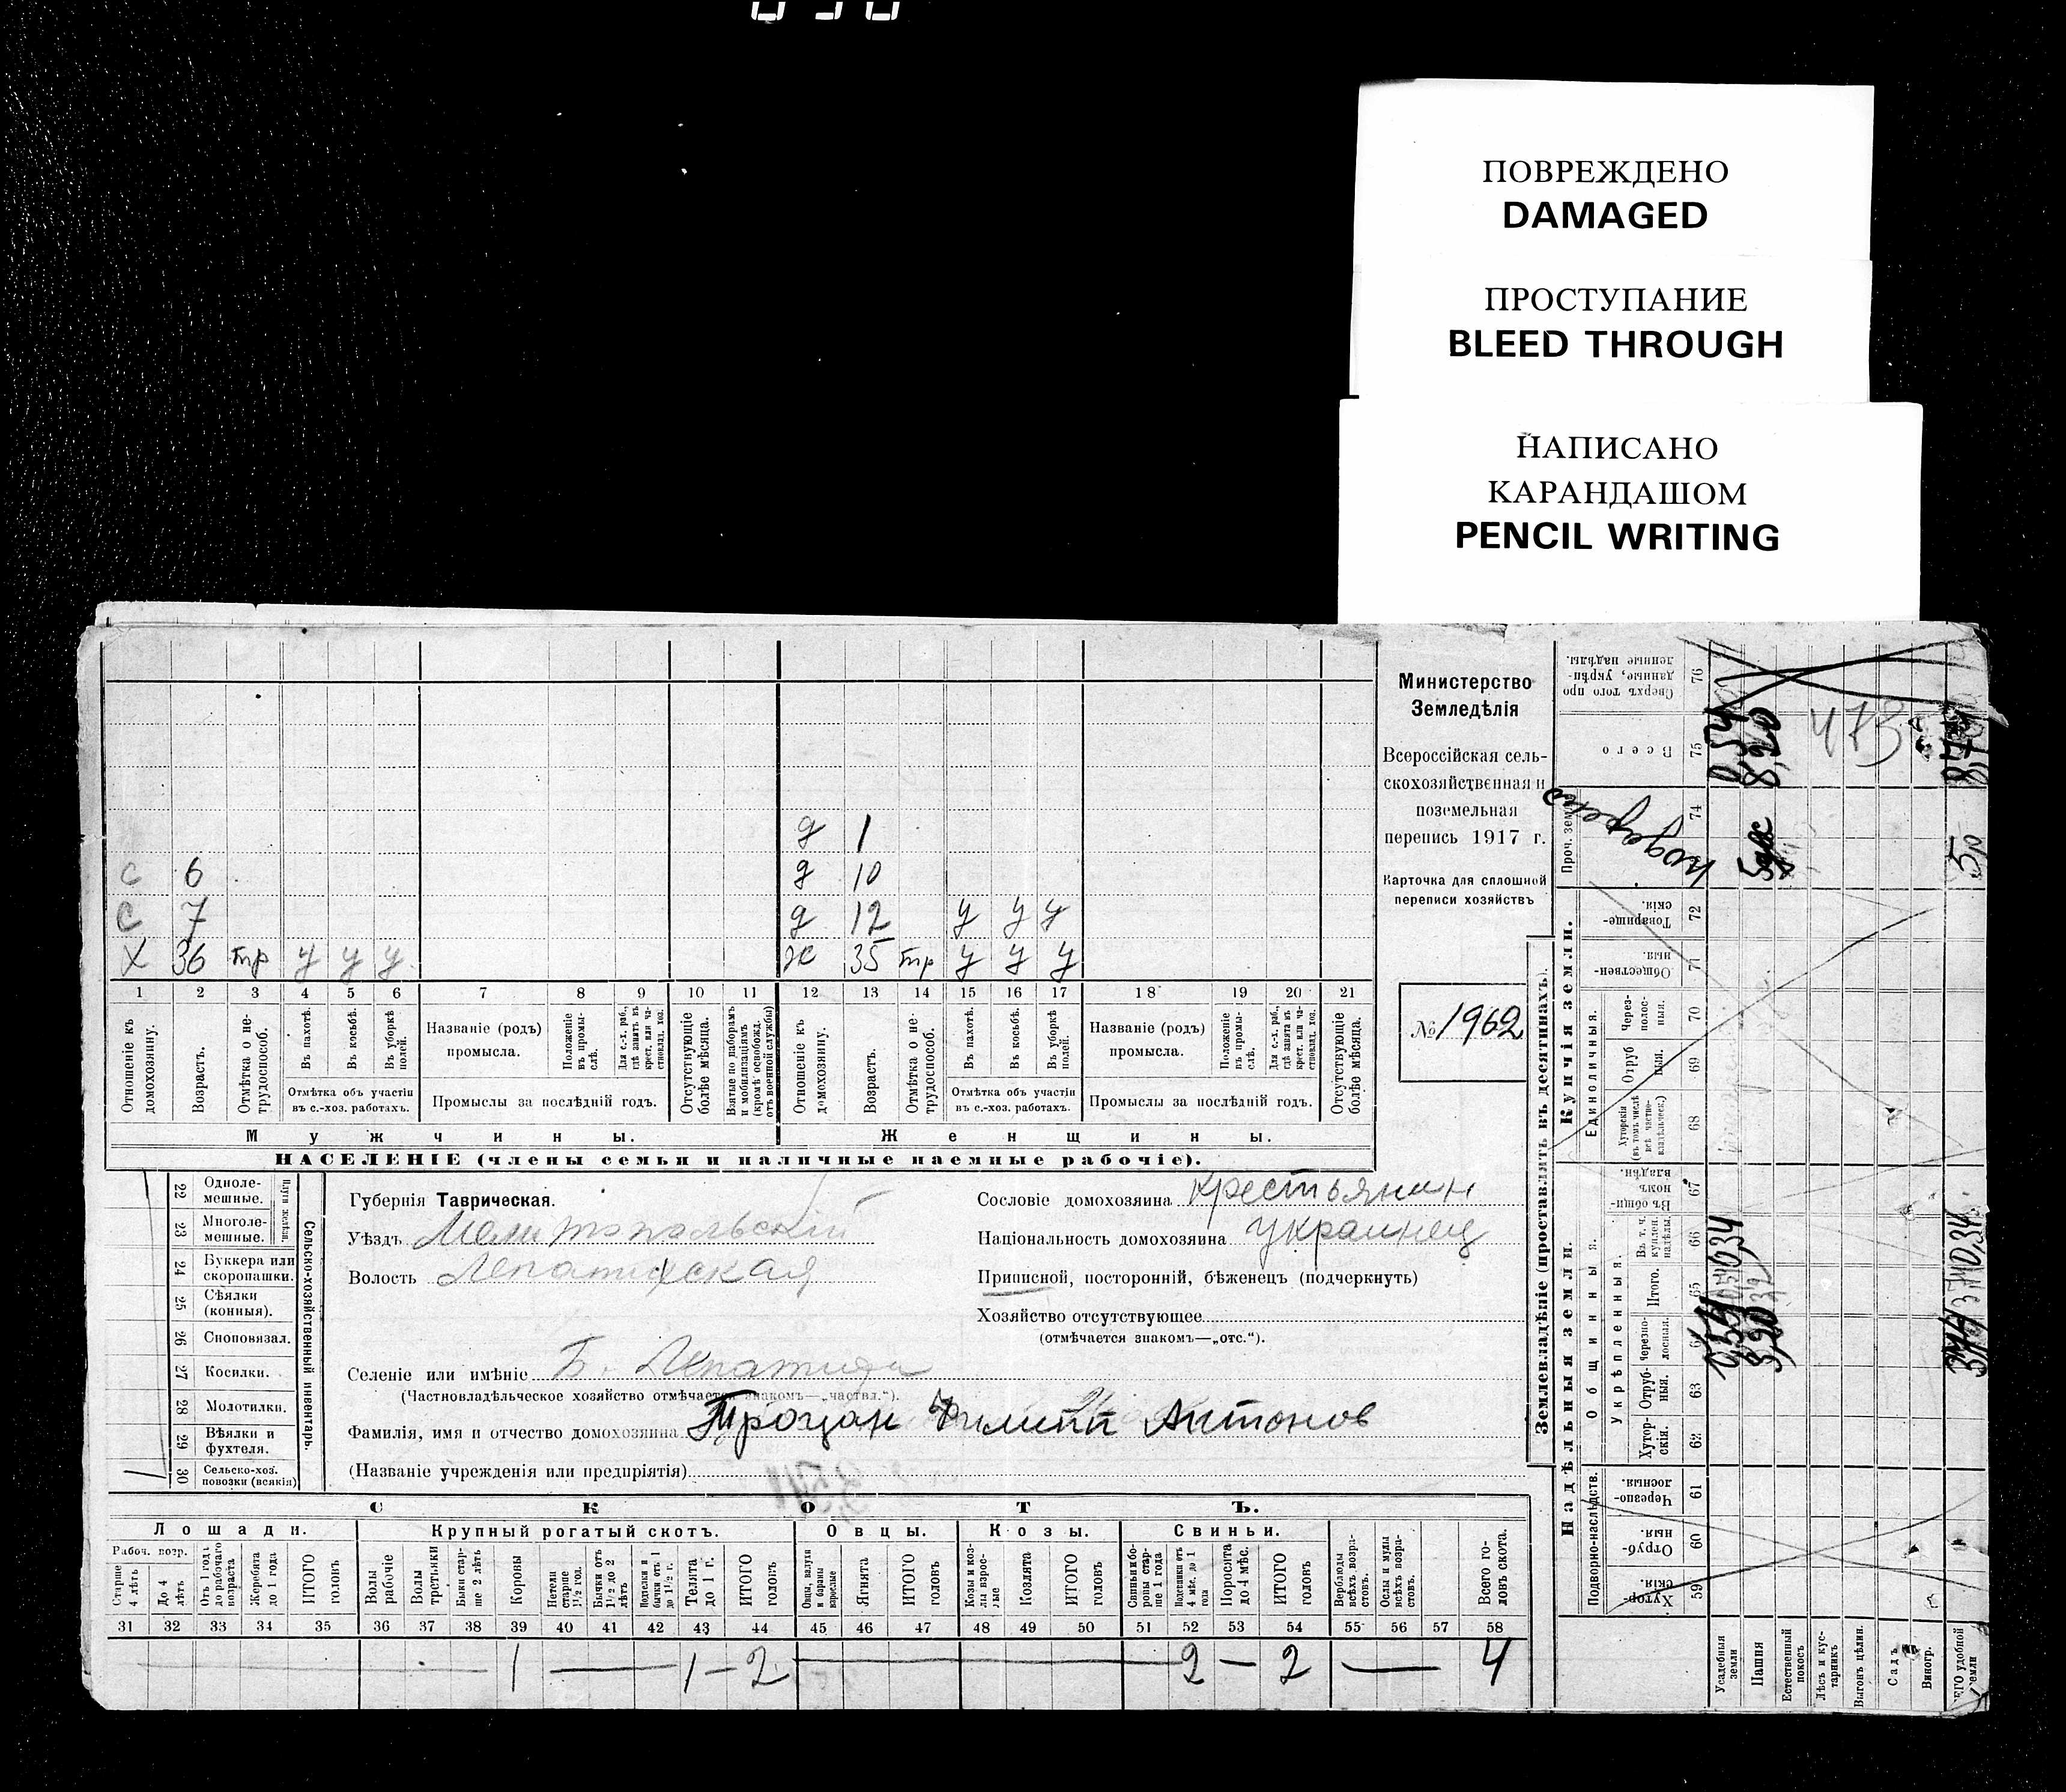 ПОВРЕЖДЕНО
DAMAGED
ПРОСТУПАНИЕ
BLEED THROUGH
НАПИСАНО
КАРАНДАШОМ
PENCIL WRITING
Министерство
Земледѣлія
Всероссійская сель-
скохозяйственная и
поземельная
перепись 1917 г.
Карточка для сплошной
переписи хозяйствъ
№ 1962
д 1
с 6 д 10
с 7 д 12 у у у
х 36 тр у у у ж 35 тр у у у
1 2 3 4 5 6 7 8 9 10 11 12 13 14 15 16 17 18 19 20 21
Отношеніе къ домохозяину.
Возрастъ.
Отмѣтка о не-трудоспособ.
Въ пахотѣ.
Въ косьбѣ.
Въ уборкѣ полей.
Отмѣтка объ участіи
въ с.-хоз. работахъ.
Названіе (родъ)
промысла.
Положеніе въ промыслѣ.
Промыслы за послѣдній годъ.
Отсутствующіе болѣе мѣсяца.
Взятые по наборамъ и мобилизаціямъ (кромѣ освобожд. отъ военной службы)
Отношеніе къ домохозяину.
Возрастъ.
Отмѣтка о не-трудоспособ.
Въ пахотѣ.
Въ косьбѣ.
Въ уборкѣ полей.
Отмѣтка объ участіи
въ с.-хоз. работахъ.
Названіе (родъ)
промысла.
Положеніе въ промыслѣ.
Промыслы за послѣдній годъ.
Отсутствующіе болѣе мѣсяца.
Мужчины. Женщины.
НАСЕЛЕНІЕ (члены семьи и наличные наемные рабочіе).
22 Однолемешные.
23 Многолемешные.
24 Буккера или скоропашки.
25 Сѣялки (конныя).
26 Сноповязал.
27 Косилки.
28 Молотилки.
29 Вѣялки и фухтеля.
30 Сельско-хоз. повозки (всякія) 1
Сельско-хозяйственный инвентарь.
Губернія Таврическая.
Уѣздъ Мелитопольский
Волость Лепатихская
Селеніе или имѣніе Б. Лепатиха
(Частновладѣльческое хозяйство отмѣчается знакомъ—„частвл.“).
Фамилія, имя и отчество домохозяина Троцан Филипп Антонов
(Названіе учрежденія или предпріятія)
Сословіе домохозяина крестьянин
Національность домохозяина украинец
Приписной, посторонній, бѣженец (подчеркнуть)
Хозяйство отсутствующее
(отмѣчается знакомъ—„отс.“).
СКОТЪ.
Лошади. Крупный рогатый скотъ. Овцы. Козы. Свиньи.
Рабоч. возр.
Старше 4 лѣтъ
До 4 лѣтъ
Отъ 1 года до рабочаго возраста
Жеребята до 1 года
ИТОГО головъ
Волы рабочіе
Волы третьяки
Быки старше 2 лѣтъ
Коровы
Нетели старше 1½ год.
Бычки отъ 1½ до 2 лѣтъ
Телята до 1 г.
ИТОГО головъ
Ягнята
ИТОГО головъ
Козы и козлы взрослые
Козлята
ИТОГО головъ
Поросята до 4 мѣс.
ИТОГО головъ
Верблюды всѣхъ возрастовъ.
Ослы и мулы всѣхъ возрастовъ.
Всего головъ скота.
31 32 33 34 35 36 37 38 39 40 41 42 43 44 45 46 47 48 49 50 51 52 53 54 55 56 57 58
1 — 1 — 2 — 2 — 2 — 4
Землевладѣніе (проставлять въ десятинахъ).
Надѣльныя земли. Купчія земли.
Подворно-наслѣдств.
Общинныя.
Укрѣпленныя.
Единоличныя.
Хуторскія 59
Отрубныя 60
Черезполосныя 61
Хуторскія. 62
Отрубныя. 63
Черезполосная.
Итого. 65
Въ т. ч. куплен. надѣлы. 66
Въ общинномъ владѣн. 67
Хуторскія (въ томъ числѣ всѣ частновладѣльческ.) 68
Отрубныя. 69
Черезполосныя. 70
Общественныя 71
Товарищескія. 72
Проч. земли 74
Всего 75
Сверхъ того проданные, укрѣпленные надѣлы. 76
Усадебныя земли 0,34 0,54
Пашня 3,20 8,20
Естественный покосъ
Лѣсъ и кустарникъ
Выгонъ цѣлин.
Садъ
Виногр.
473